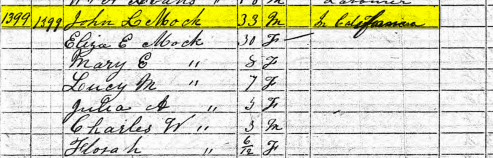 1399 1399 John L. Mock 33 M In California
Eliza E Mock 30 F
Mary E " 8 F
Lucy M " 7 F
Julia A " 5 F
Charles W " 3 M
Florah " 6/12 F